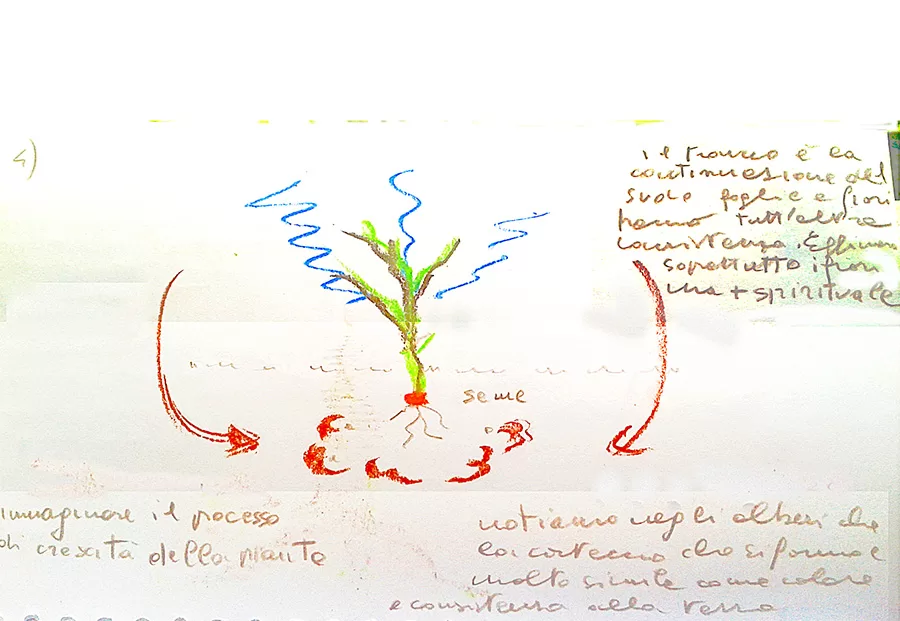 4)
il tronco è la
continuazione del
suolo foglie e fiori
hanno tutt'altra
consistenza. Effimeri
soprattutto i fiori
ma + spirituale
seme
immaginare il processo
di crescita della pianta
notiamo negli alberi che
la corteccia che si forma è
molto simile come colore
e consistenza alla terra